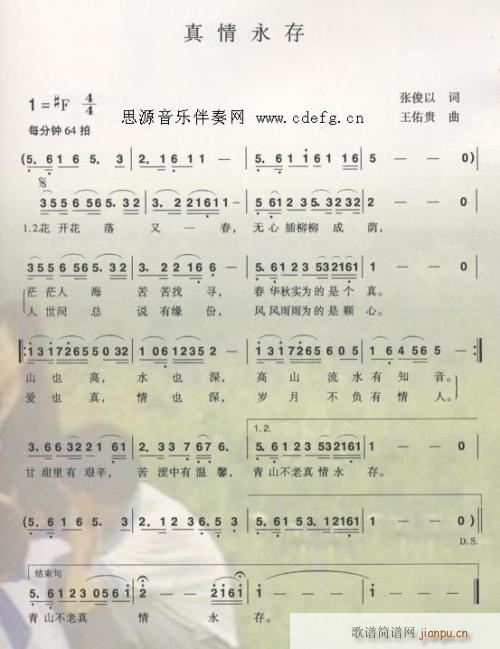 真情永存
1=♯F 4/4
张俊以 词
思源音乐伴奏网 www.cdefg.cn
王佑贵 曲
每分钟64拍
(5. 6 1 6 5. 3 | 2. 1 6 1 1 - | 5. 6 1 1 6 1 2 3 1 6 | 5 - - 0)
3 5 5 5 6 5 6 5. 3 2 | 2. 3 2 2 1 6 1 1 - | 5. 6 1 2 3 5. 3 2 3 2 | 2 - - 0
1.2.花开花落又一春, 无心插柳柳成荫,
3 5 5 5 6 5 6 5. 3 2 | 3 5. 2 2 1 6 6 - | 5. 6 1 2 3 5 3 2 1 6 1 | 1 - - 0
茫茫人海苦苦找寻, 春华秋实为的是个真。
人世间总说有缘份, 风风雨雨为的是颗心。
1 3 1 7 2 6 5 5 0 3 2 | 1 0 6 1 2 3 2 2 - | 1 3 1 7 2 6 5 6 0 5 | 1 6 4 5 5 -
山也高, 水也深, 高山流水有知音。
爱也真, 情也深, 岁月不负有情人。
1.2.
3. 6 6 3 2 2 1 6 1 | 2. 3 3 7 6 7 - | 5. 6 1 2 3 0 5 2 1 6 1 | 1 - - 0
甘甜里有艰辛, 苦涩中有温馨, 青山不老真情永存。
(5. 6 1 6 5. 3 | 2. 1 2 3 6. 5 3 | 5. 6 1 2 3 5. 3 2 1 6 1 | 1 - - 0)
D.S.
结束句
5. 6 1 2 3 0 5 6 1 | 2 - - 2 1 6 1 | 1 - - - | 1 - - 0
青山不老真情永存。
歌谱简谱网 jianpu.cn